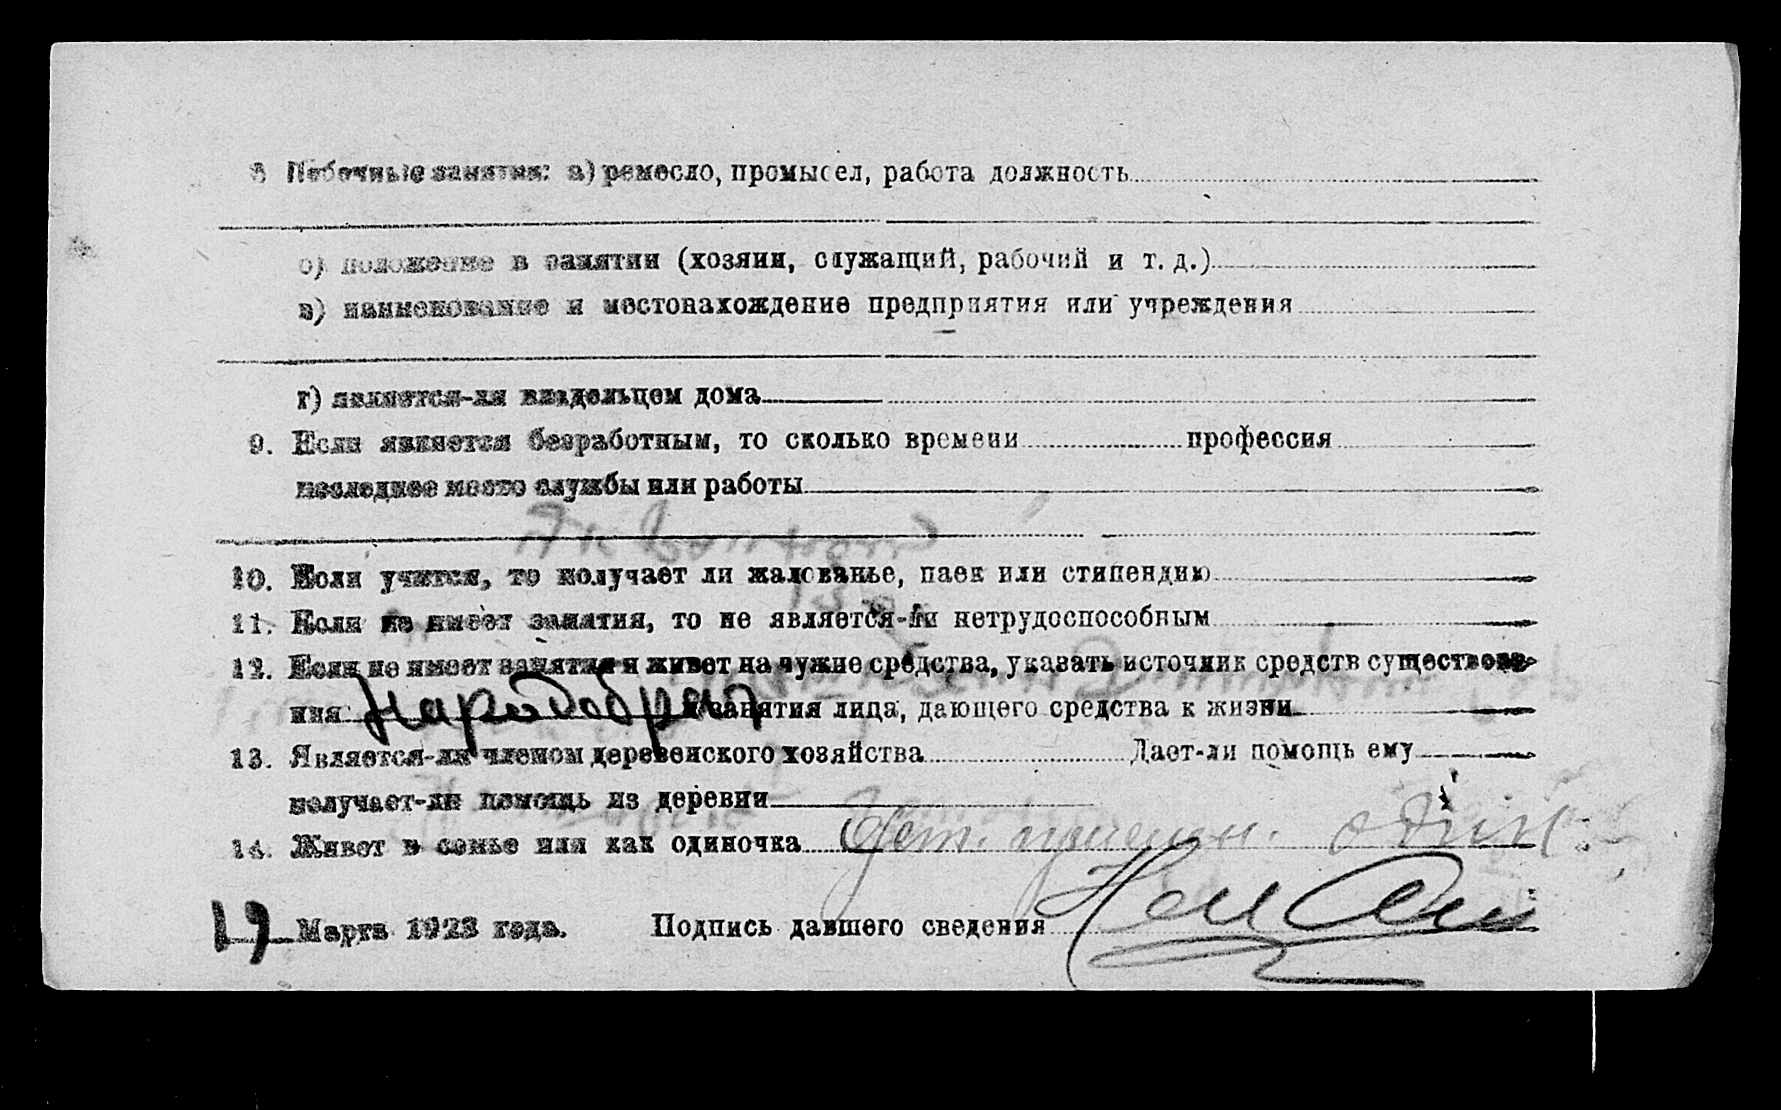 8 Побочные занятия: а) ремесло, промысел, работа должность
б) положение в занятии (хозяин, служащий, рабочий и т. д.)
в) наименование и местонахождение предприятия или учреждения
г) является-ли владельцем дома
9. Если является безработным, то сколько времени профессия
последнее место службы или работы
10. Если учится, то получает ли жалованье, паек или стипендию
11. Если не имеет занятия, то не является-ли нетрудоспособным
12. Если не имеет занятия и живет на чужие средства, указать источник средств существова-
ния Наробобраз и занятия лица, дающего средства к жизни
13. Является-ли членом деревенского хозяйства Дает-ли помощь ему
получает-ли помощь из деревни
14. Живет в семье или как одиночка один
19 Марта 1923 года. Подпись давшего сведения